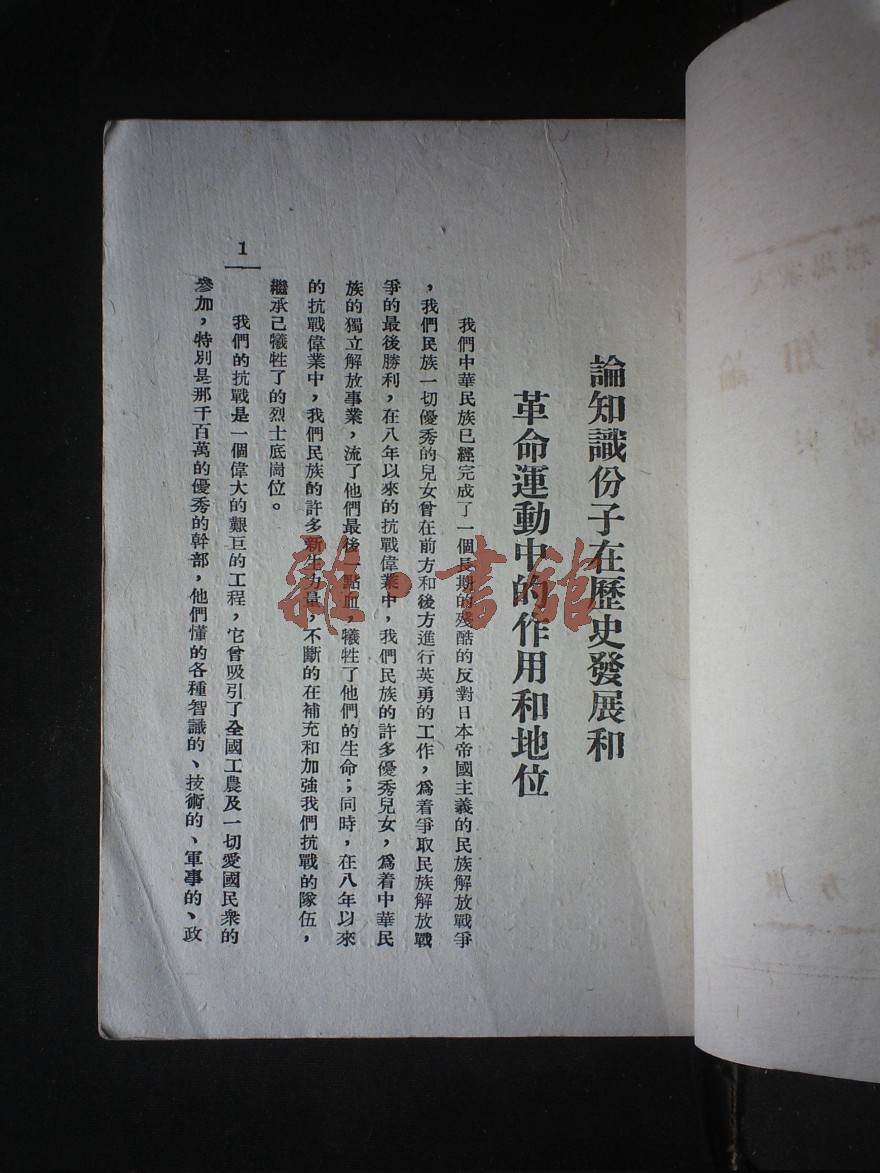 論知識份子在歷史發展和
革命運動中的作用和地位
我們中華民族已經完成了一個長期的殘酷的反對日本帝國主義的民族解放戰爭
，我們民族一切優秀的兒女曾在前方和後方進行英勇的工作，爲着爭取民族解放戰
爭的最後勝利，在八年以來的抗戰偉業中，我們民族的許多優秀兒女，爲着中華民
族的獨立解放事業，流了他們最後一點血，犧牲了他們的生命；同時，在八年以來
的抗戰偉業中，我們民族的許多新生力量，不斷的在補充和加強我們抗戰的隊伍，
繼承已犧牲了的烈士底崗位。
我們的抗戰是一個偉大的艱巨的工程，它曾吸引了全國工農及一切愛國民衆的
參加，特別是那千百萬的優秀的幹部，他們懂的各種智識的、技術的、軍事的、政
1
雜·書館